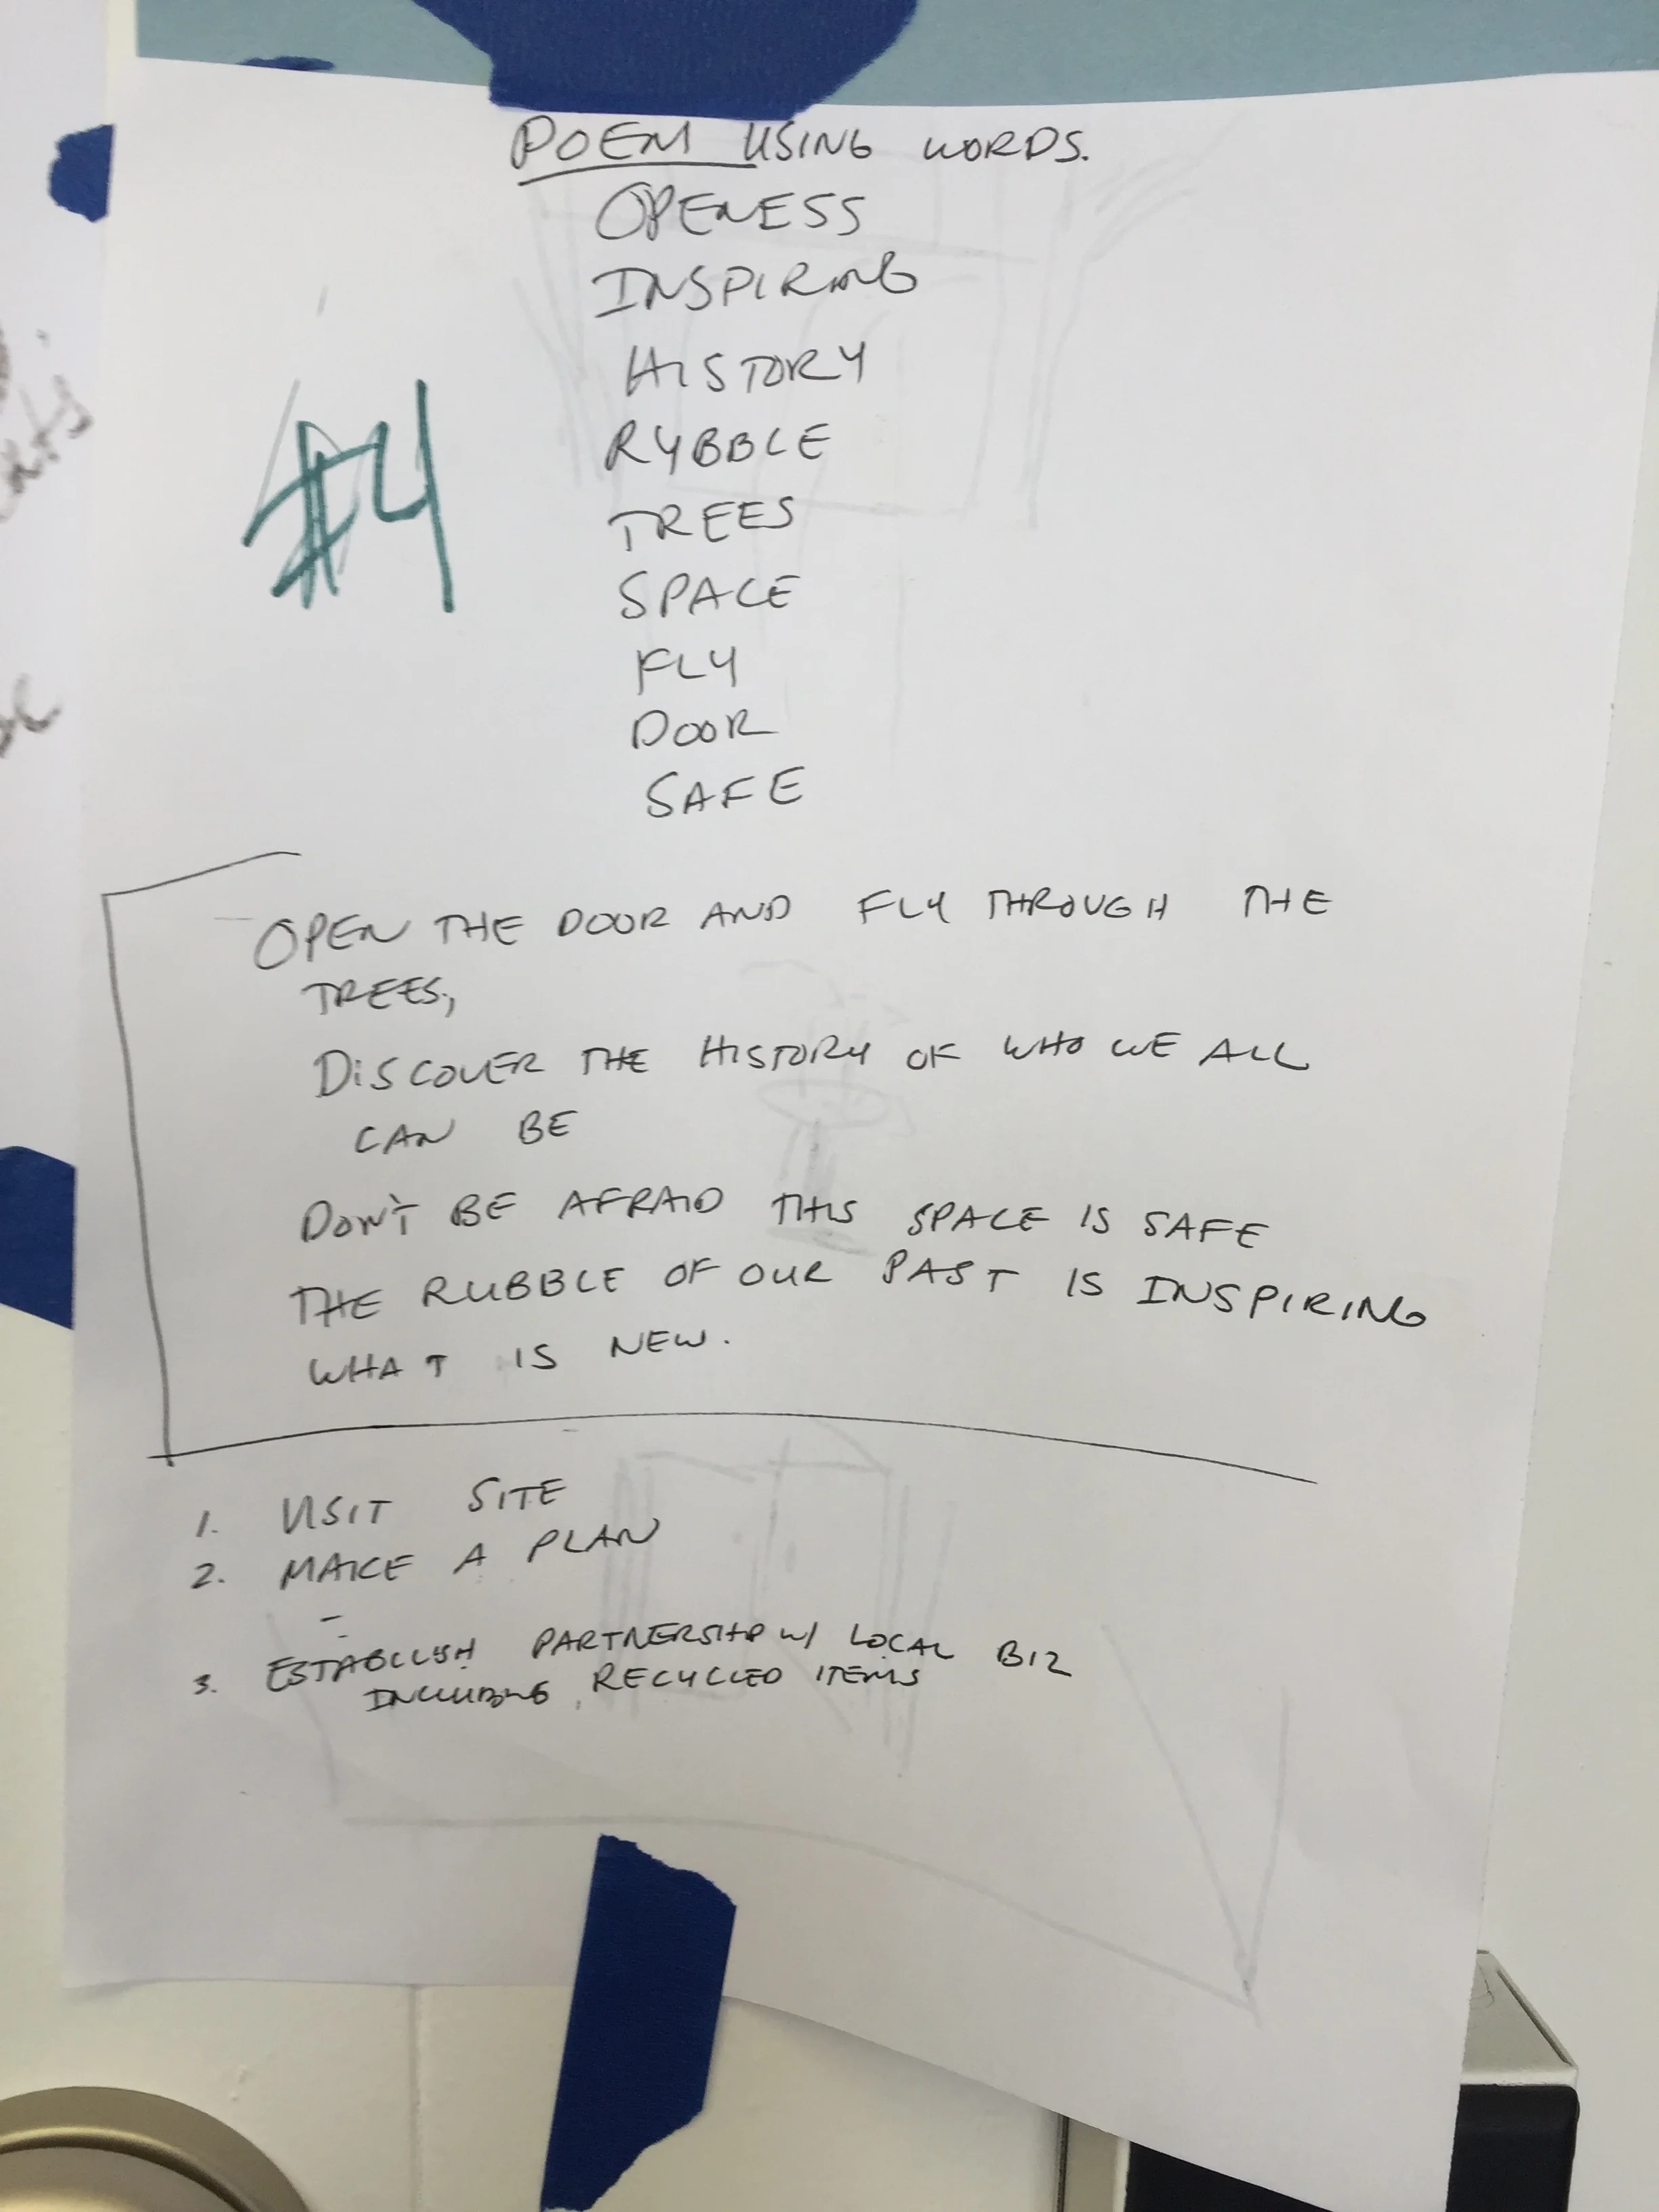 POEM USING WORDS.
OPENESS
INSPIRING
HISTORY
RYBBLE
TREES
SPACE
FLY
DOOR
SAFE
#4
OPEN THE DOOR AND FLY THROUGH THE
TREES,
DISCOVER THE HISTORY OF WHO WE ALL
CAN BE
DON'T BE AFRAID THIS SPACE IS SAFE
THE RUBBLE OF OUR PAST IS INSPIRING
WHAT IS NEW.
1. VISIT SITE
2. MAKE A PLAN
3. ESTABLISH PARTNERSHIP W/ LOCAL BIZ
INCLUDING RECYCLED ITEMS